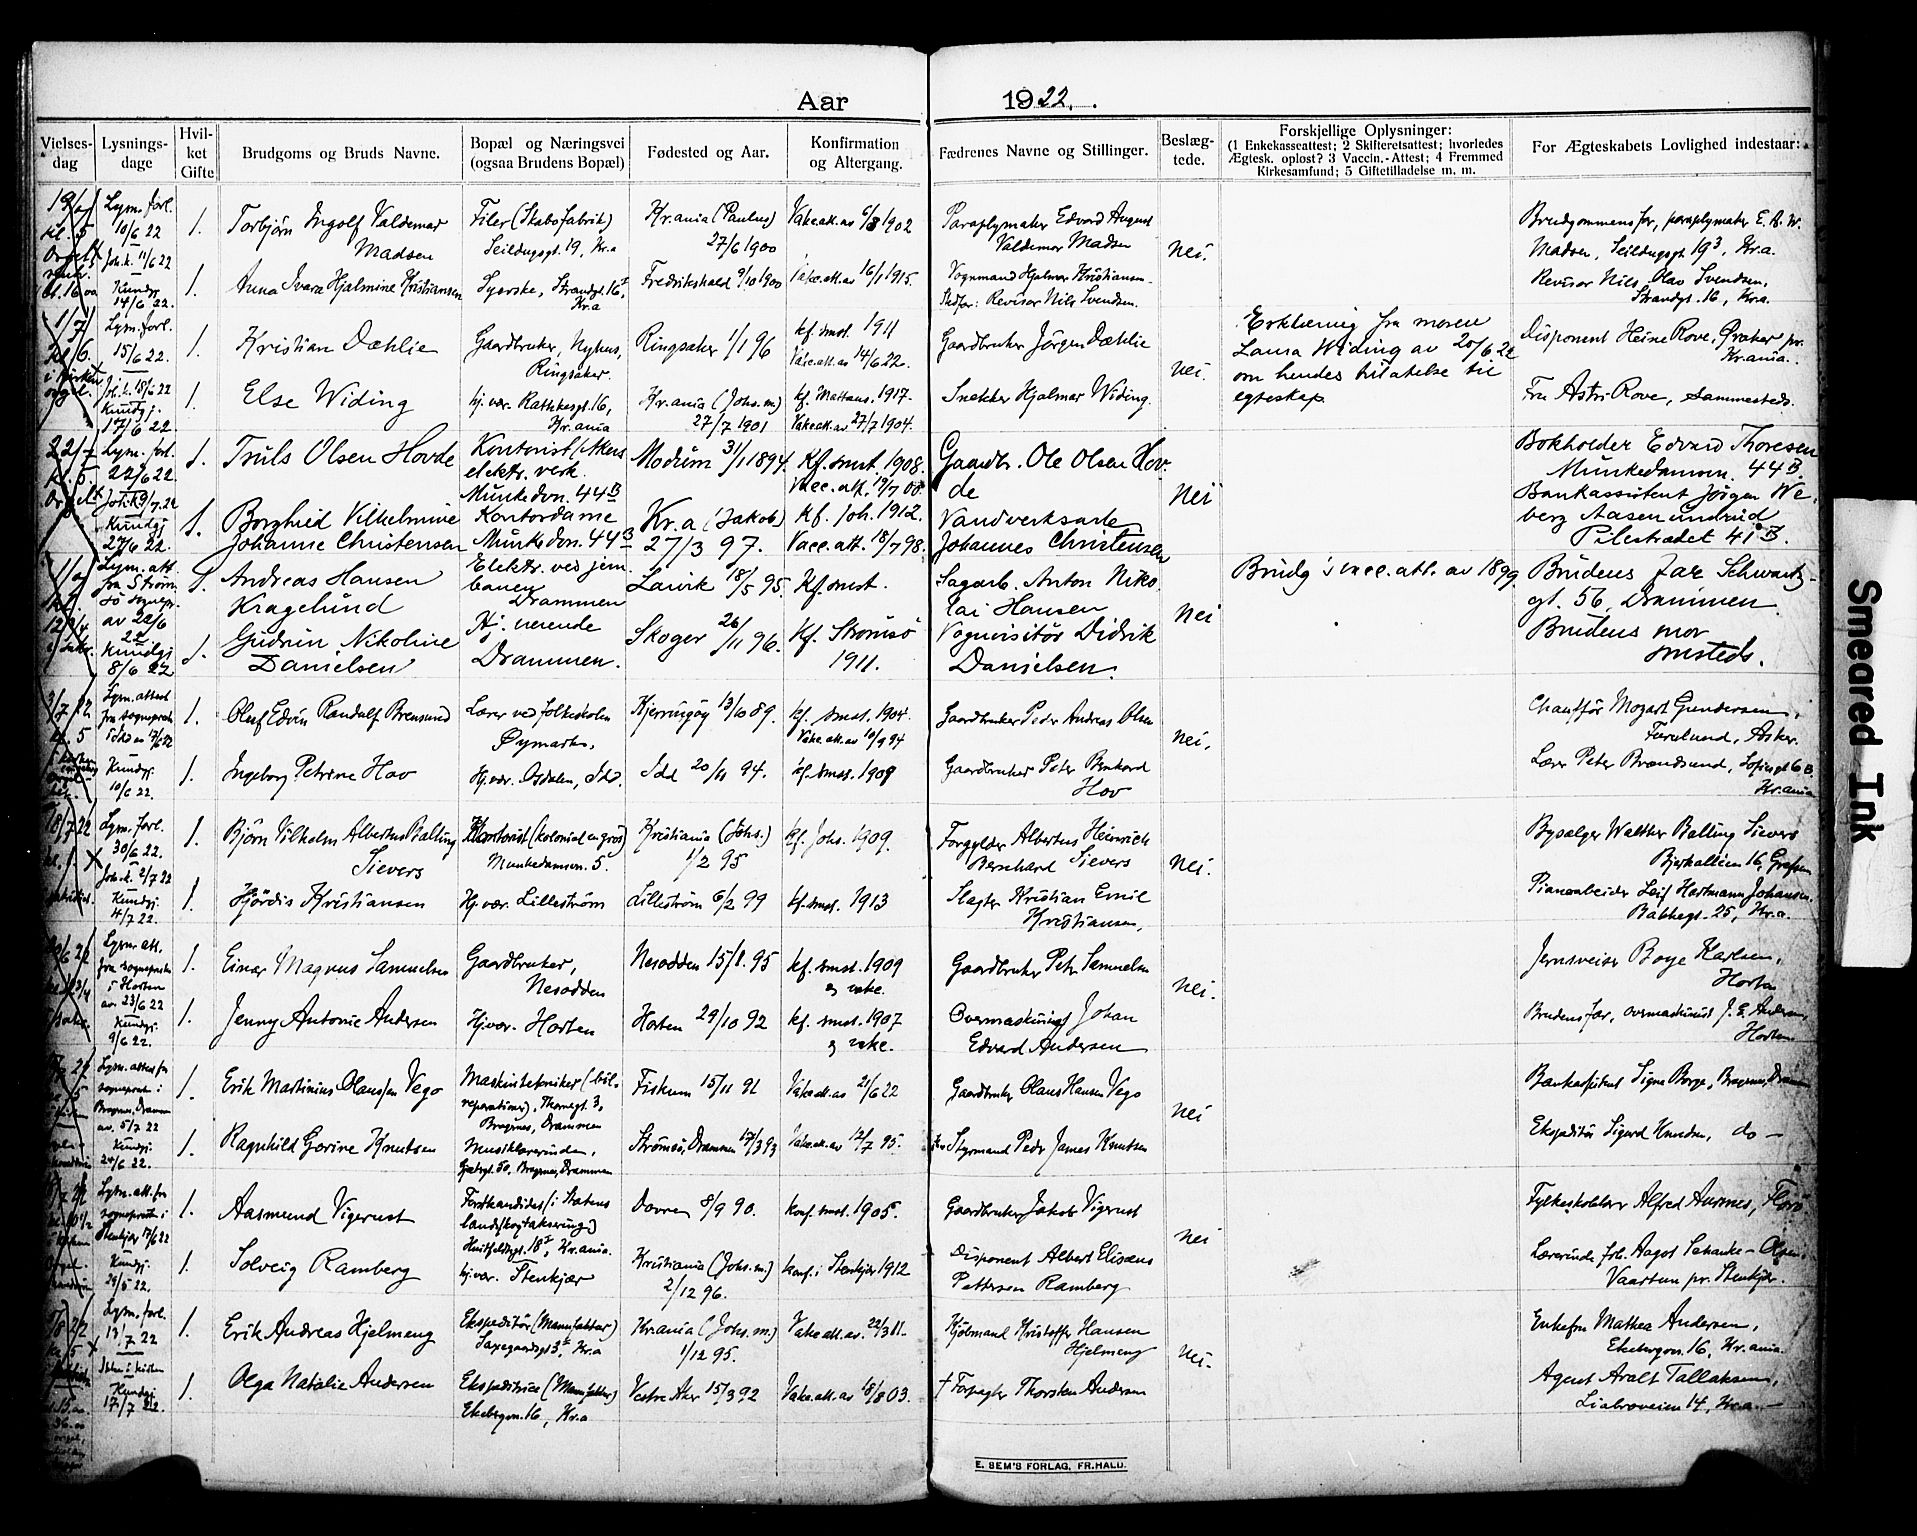 Aar 1922.
Vielses-
dag
Lysnings-
dage
Hvil-
ket
Gifte
Brudgoms og Bruds Navne.
Bopæl og Næringsvei
(ogsaa Brudens Bopæl)
Fødested og Aar.
Konfirmation
og Altergang.
Fædrenes Navne og Stillinger.
Beslæg-
tede.
Forskjellige Oplysninger:
(1 Enkekasseattest; 2 Skifteretsattest; hvorledes
Ægtesk. oplost? 3 Vaccin.-Attest; 4 Fremmed
Kirkesamfund; 5 Giftetilladelse m. m.
For Ægteskabets Lovlighed indestaar:
Lysn. forl.
10/6 22
Joh.k. 11/6 22
Kundgj.
14/6 22.
1.
Torbjörn Ingolf Valdemar
Madsen
Filer (Skabofabrik)
Seilduggt. 19, Kr.a
Kr.ania (Paulus)
27/6 1900
Vakc.att. av 6/8 1902
Paraplymaker Edvard August
Valdemar Madsen
nei.
Brudgommens far, paraplymaker E. A. W.
Madsen, Seilduggt. 19³, Kr.a.
1.
Anna Ivara Hjalmine Kristiansen
Syerske, Strandgt. 16,
Kr.a
Fredrikshald 9/10 1900
Vakc.att. av 16/1 1915.
Vognmand Hjalmar Kristiansen
Stedfar: Revisor Nils Svendsen.
Revisor Nils Olav Svendsen,
Strandgt. 16, Kr.a.
1/7
kl. 6.
Lysn. forl.
15/6 22.
Joh.k. 18/6 22
Kundgj.
17/6 22.
1.
Kristian Dæhlie
Gaardbruker, Nyhus,
Ringsaker.
Ringsaker 1/1 96
kf. smst. 1911
Vakc.att. av 14/6 22.
Gaardbruker Jörgen Dæhlie
nei.
Erklæring fra moren
Laura Widing av 20/6 22
om hendes tillatelse til
egteskap.
Disponent Heine Rove, Præker pr.
Kr.ania.
1.
Else Widing
hj. vær. Rathkesgt. 16,
Kr.ania
Kr.ania (Johs.m.)
27/7 1901
kf. Mattæus. 1917.
Vakc.att. av 27/7 1904.
Snekker Hjalmar Widing.
Fru Astri Rove, sammesteds.
22/7
kl. 5.
Lysn. forl.
22/6 22.
Joh.k 9/7. 22
Kundgj
27/6 22.
1.
Truls Olsen Hovde
Kontorist (Akers
elektr. verk.
Munkedvn. 44B
Modum 31/1 1894.
Kf. smst. 1908.
Vacc. att. 19/7 08.
Gaardbr. Ole Olsen Hov-
de
Nei
Bokholder Edvard Thoresen
Munkedamsvn. 44B.
1.
Borghild Vilhelmine
Johanne Christensen
Kontordame
Munkedvn. 44B
Kr.a (Jakob)
27/3 97.
Kf. Joh. 1912.
Vacc. att. 18/7 98.
Vandverksarb.
Johannes Christensen
Bankassistent Jörgen We-
berg Aasenundrud
Pilestrædet 41B.
Lysn. att.
fra Ström-
sö sognepr.
av 22/6
22
Kundgj
8/6 22
1.
Andreas Hansen
Kragelund
Elektr. ved jern-
banen
Drammen
Larvik 18/5 95.
Kf. smst.
Sagarb. Anton Niko-
lai Hansen
Nei
Brudg's vacc. att. av 1899
Brudens far Schwartz-
gt. 56, Drammen.
1.
Gudrun Nikoline
Danielsen
Hj. værende
Drammen.
Skoger 26/11 96.
Kf. Strömsö
1911.
Vognvisitör Didrik
Danielsen.
Brudens mor
smsteds.
3/7 22
kl. 5
Lysn. attest
fra sogneprest
Kundgj.
10/6 22.
1.
Oluf Edvin Randulf Brensund
Lærer ved folkeskolen
Öymark.
Kjerringöy 13/10 89.
kf. smst. 1904.
Vakc.att. av 10/9 94
Gaardbruker Peder Andreas Olsen
nei.
Chaufför Mozart Gundersen,
Furulund, Asker.
1.
Ingeborg Petrine Hov
Hj. vær. Osdalen, Idd.
Idd 20/11 94.
kf. smst. 1909
Gaardbruker Peter Bernhard
Hov
Lærer Peter Brændsund, Sofiesgt 6B,
Kr.ania
18/7 22
Lysn. forl.
30/6 22.
Joh.k. 2/7 22
Kundgj.
4/7 22.
1.
Björn Vilhelm Albertus Balling
Sievers
Kontorist (kolonial engros)
Munkedamsvn. 5.
Kristiania (Johs.)
1/2 95
kf. Johs. 1909.
Forgylder Albertus Heinrich
Bernhard Sievers
nei.
Bysælger Walther Balling Sievers
Bjerkalléen 16, Grefsen
1.
Hjördis Kristiansen
Hj. vær. Lilleström
Lilleström 6/2 99
kf. smst. 1913
Slagter Kristian Emil
Kristiansen,
Pianoarbeider Leif Hartmann Johansen
Bakkegt. 25, Kr.a.
Lysn. att.
fra sogneprest
i Horten
av. 23/6 22
Kundgj.
9/6 22.
1.
Einar Magnus Samuelsen
Gaardbruker,
Nesodden
Nesodden 15/1. 95
kf. smst. 1909
og vakc.
Gaardbruker Petr. Samuelsen
nei.
Jernsveiser Boye Karlsen,
Horten
1.
Jenny Antonie Andersen
Hj.vær. Horten
Horten 29/10 92
kf. smst. 1907
og vakc.
Overmaskinist Johan
Edvard Andersen
Brudens far, overmaskinist J. E. Andersen,
Horten
Lysn. attest fra
sogneprest i
Bragernes, Drammen
av. 5/7 22
Kundgj.
24/6 22.
1.
Erik Martinius Olaussen Vego
Maskintekniker (bil-
reparatiner), Thornegt. 3,
Bragernes, Drammen
Fiskum 15/11 91
Vakc.att. av 21/6 22
Gaardbruker Olaus Hansen Vego
nei
Bankassistent Signe Borge, Bragernes, Drammen
1.
Ragnhild Gorine Knutsen
Musiklærerinde,
Gjætergt. 50, Bragernes, Drammen
Strömsö, Drammen 17/3 93
Vakc.att. av 12/7 95.
Styrmand Peder James Knutsen
Ekspeditör Sigurd Knudsen, do —
Lysn. att. fra
sogneprest i
Stenkjær 17/6 22
Kundgj.
29/6 22.
1.
Aasmund Vigerust
Forstkandidat (i Statens
landsskogtaksering)
Huitfeldtsgt. 18, Kr.ania.
Dovre 8/9 90.
konf. smst. 1905.
Gaardbruker Jakob Vigerust
nei
Fylkeskolelærer Alfred Aarnes, Florö
1.
Solveig Ramberg
hj. vær. Stenkjær
Kristiania (Johs.m.)
2/12 96.
konf. i Stenkjær 1912
Disponent Albert Elisæus
Pettersen Ramberg
Lærerinde frk. Aagot Schanke-Olsen,
Vaartun pr. Stenkjær.
Lysn. forl.
13/7 22
Kundgj.
17/7 22.
1.
Erik Andreas Hjelmeng
Ekspeditör (Manufaktur)
Saxegaardsgt 3, Kr.a
Kr.ania (Johs.m.)
1/12 95.
Vakc.att. av. 22/3 11.
Kjöbmand Kristoffer Hansen
Hjelmeng
nei.
Enkefru Mathea Andersen,
Ekebergvn. 16, Kr.ania.
1.
Olga Natalie Andersen
Ekspeditrice (Manufaktur)
Ekebergvn. 16, Kr.a
Vestre Aker 15/3 92
Vakc.att. av 18/8 03.
† Forpagter Thorsten Andersen
Agent Aralt Tallaksen,
Liabroveien 14, Kr.a.
E. SEM'S FORLAG, FR.HALD.
Smeared Ink